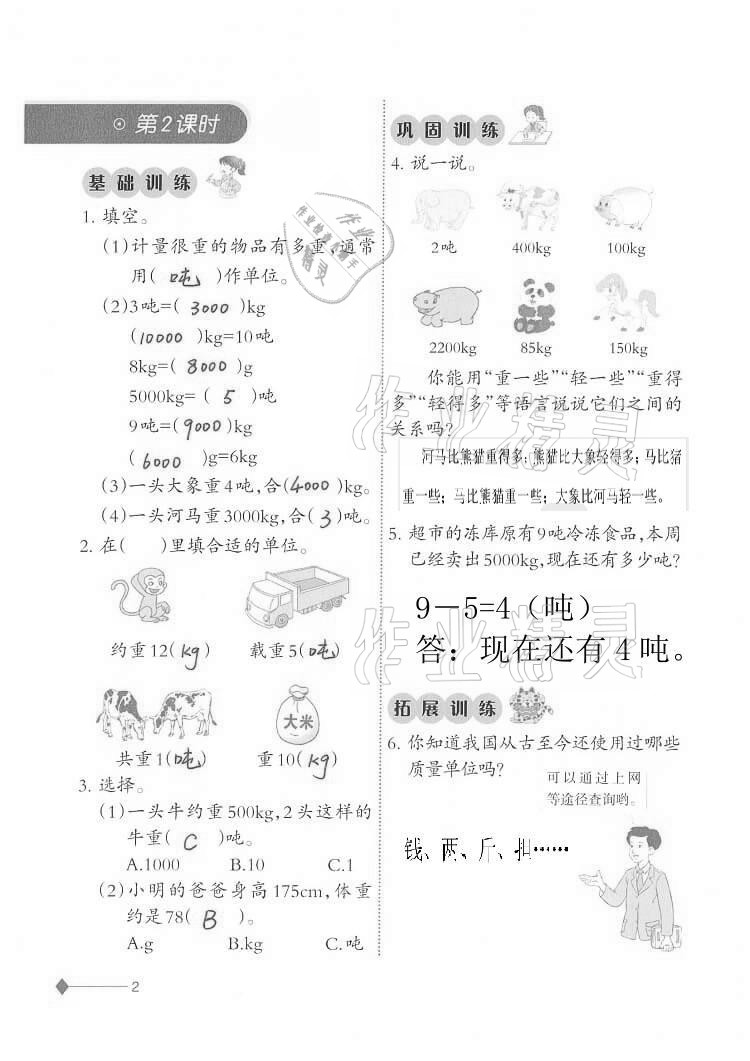 第2课时
基础训练
1. 填空。
(1)计量很重的物品有多重,通常
用( 吨 )作单位。
(2)3吨=( 3000 )kg
(10000 )kg=10吨
8kg=( 8000 )g
5000kg=( 5 )吨
9吨=(9000)kg
(6000 )g=6kg
(3)一头大象重4吨,合(4000)kg。
(4)一头河马重3000kg,合( 3 )吨。
2. 在( )里填合适的单位。
约重12( kg ) 载重5( 吨 )
大米
共重1( 吨 ) 重10( kg )
3. 选择。
(1)一头牛约重500kg,2头这样的
牛重( C )吨。
A.1000 B.10 C.1
(2)小明的爸爸身高175cm,体重
约是78( B )。
A.g B.kg C.吨
2
巩固训练
4. 说一说。
2吨 400kg 100kg
2200kg 85kg 150kg
你能用“重一些”“轻一些”“重得
多”“轻得多”等语言说说它们之间的
关系吗?
河马比熊猫重得多;熊猫比大象轻得多;马比猪
重一些;马比熊猫重一些;大象比河马轻一些。
5. 超市的冻库原有9吨冷冻食品,本周
已经卖出5000kg,现在还有多少吨?
9－5=4（吨）
答：现在还有4吨。
拓展训练
6. 你知道我国从古至今还使用过哪些
质量单位吗?
可以通过上网
等途径查询哟。
钱、两、斤、担……
作业精灵
作业检查小助手